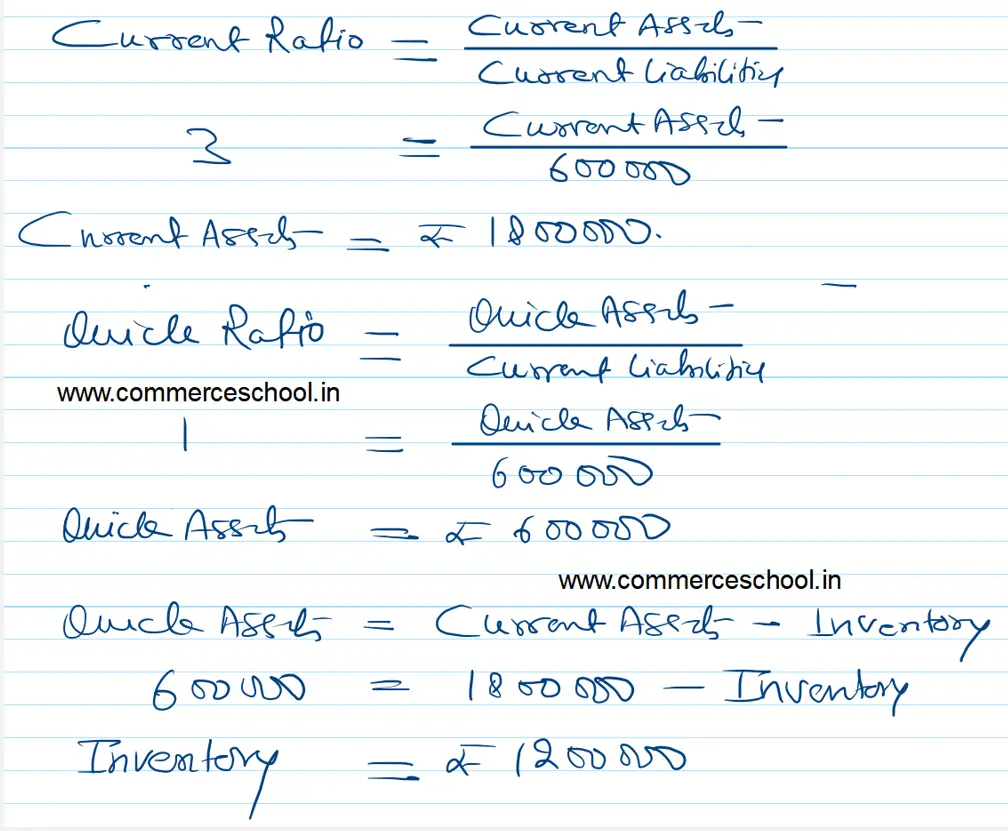 Current Ratio = Current Assets
Current Liabilities
3 = Current Assets
600000
Current Assets = ₹ 1800000.
Quick Ratio = Quick Assets
Current Liabilities
www.commerceschool.in
1 = Quick Assets
600000
Quick Assets = ₹ 600000
www.commerceschool.in
Quick Assets = Current Assets - Inventory
600000 = 1800000 - Inventory
Inventory = ₹ 1200000